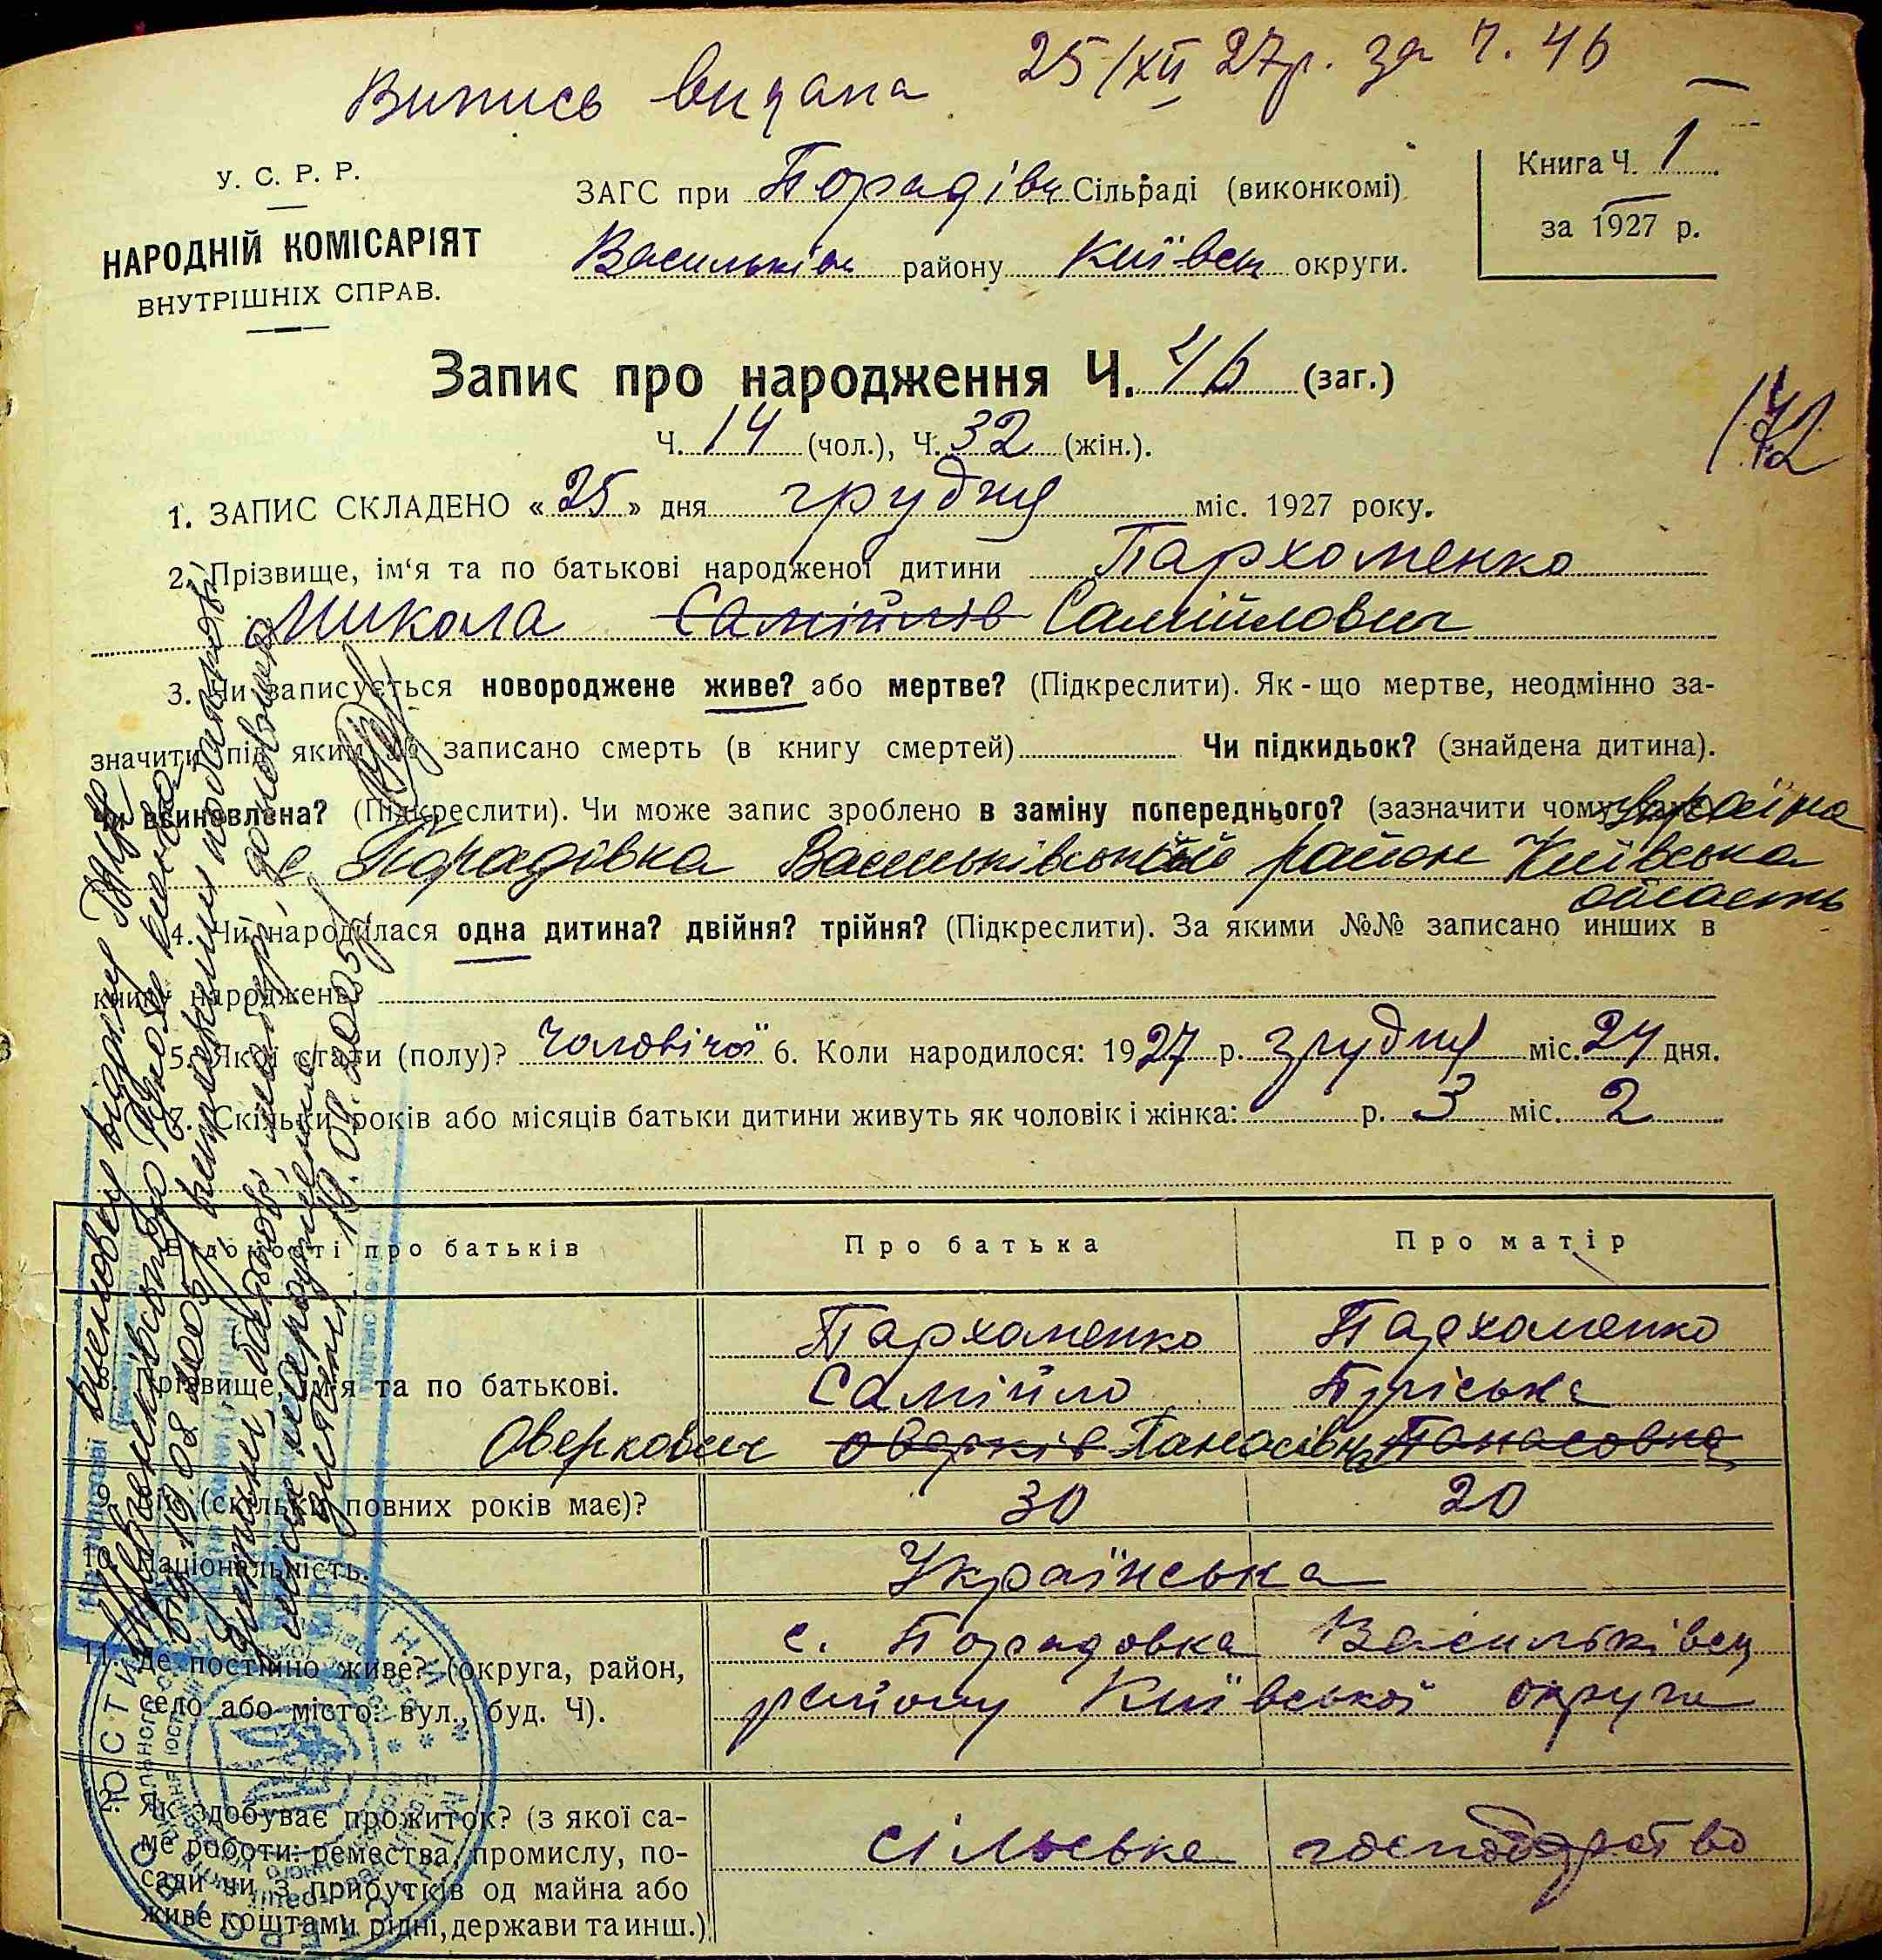 Випись видана 25/XII 27р. за ч. 46
У. С. Р. Р.
НАРОДНІЙ КОМІСАРІЯТ
ВНУТРІШНІХ СПРАВ.
ЗАГС при Порадівц Сільраді (виконкомі)
Васильків району Київськ округи.
Книга Ч. 1
за 1927 р.
Запис про народження Ч. 46 (заг.)
Ч. 14 (чол.), Ч. 32 (жін.).
172
1. ЗАПИС СКЛАДЕНО « 25 » дня грудня міс. 1927 року.
2. Прізвище, ім'я та по батькові народженої дитини Пархоменко
Микола Самійлів Самійлович
3. Чи записується новороджене живе? або мертве? (Підкреслити). Як-що мертве, неодмінно за-
значити під яким № записано смерть (в книгу смертей) Чи підкидьок? (знайдена дитина).
Чи всиновлена? (Підкреслити). Чи може запис зроблено в заміну попереднього? (зазначити чому Україна
с Порадівка Васильківський район Київська
область
4. Чи народилася одна дитина? двійня? трійня? (Підкреслити). За якими №№ записано инших в
книгу народжень?
5. Якої стати (полу)? Чоловічої 6. Коли народилося: 1927 р. грудня міс. 24 дня.
7. Скільки років або місяців батьки дитини живуть як чоловік і жінка: р. 3 міс. 2
Відомості про батьків
Про батька
Про матір
8. Прізвище, ім'я та по батькові.
Пархоменко
Пархоменко
Самійло
Пріська
Оверкович оверків Панасівна Панасовна
9. Вік (скільки повних років має)?
30
20
10. Національність.
Українська
11. Де постійно живе? (округа, район,
село або місто: вул., буд. Ч).
с. Порадовка Васильківськ
району Київської округи
12. Як здобуває прожиток? (з якої са-
ме роботи: ремества, промислу, по-
сади чи з прибутків од майна або
живе коштами рідні, держави та инш.)
сільське господарство